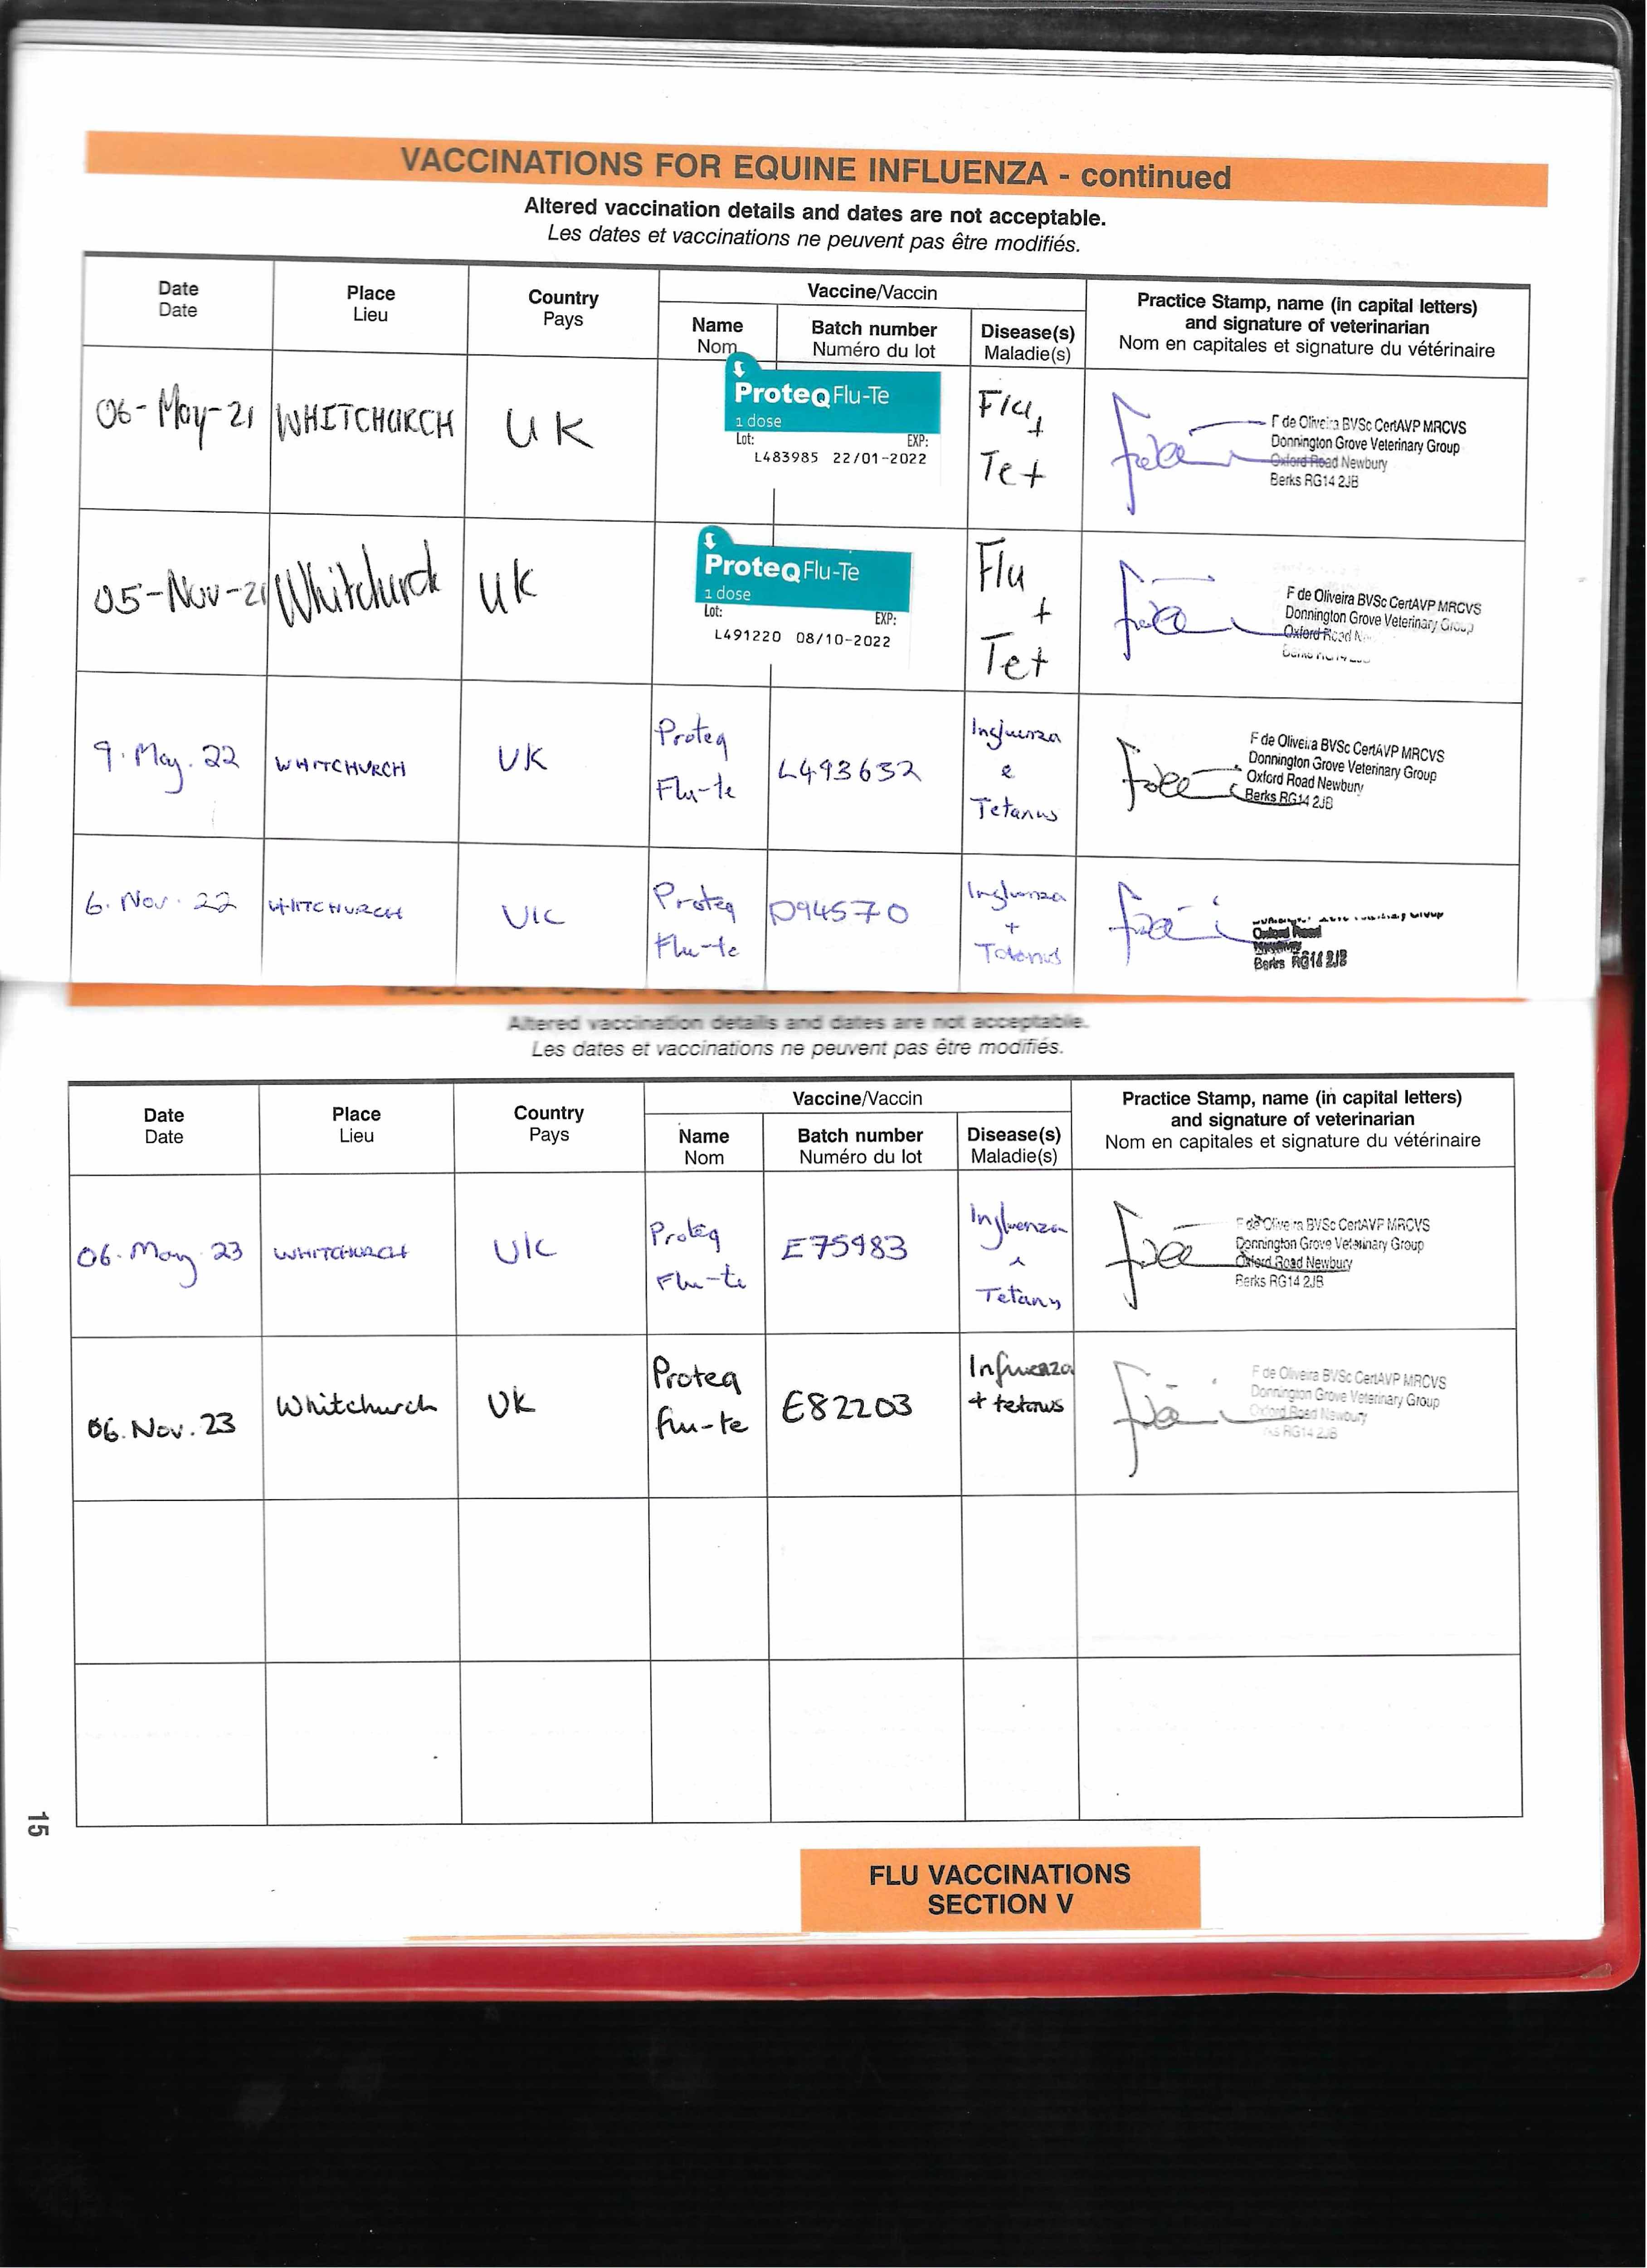 VACCINATIONS FOR EQUINE INFLUENZA - continued
Altered vaccination details and dates are not acceptable.
Les dates et vaccinations ne peuvent pas être modifiés.
Date
Date
Place
Lieu
Country
Pays
Vaccine/Vaccin
Name
Nom
Batch number
Numéro du lot
Disease(s)
Maladie(s)
Practice Stamp, name (in capital letters)
and signature of veterinarian
Nom en capitales et signature du vétérinaire
06-May-21
WHITCHURCH
UK
ProteqFlu-Te
1 dose
Lot: EXP:
L483985 22/01-2022
Flu
+
Tet
F de Oliveira BVSc CertAVP MRCVS
Donnington Grove Veterinary Group
Oxford Road Newbury
Berks RG14 2JB
05-Nov-21
Whitchurch
UK
ProteqFlu-Te
1 dose
Lot: EXP:
L491220 08/10-2022
Flu
+
Tet
F de Oliveira BVSc CertAVP MRCVS
Donnington Grove Veterinary Group
Oxford Road
9. May. 22
WHITCHURCH
UK
Proteq
Flu-te
L493632
Influenza
&
Tetanus
F de Oliveira BVSc CertAVP MRCVS
Donnington Grove Veterinary Group
Oxford Road Newbury
Berks RG14 2JB
6. Nov. 22
WHITCHURCH
UK
Proteq
Flu-te
D94570
Influenza
+
Tetanus
Oxford Road
Newbury
Berks RG14 2JB
Altered vaccination details and dates are not acceptable.
Les dates et vaccinations ne peuvent pas être modifiés.
Date
Date
Place
Lieu
Country
Pays
Vaccine/Vaccin
Name
Nom
Batch number
Numéro du lot
Disease(s)
Maladie(s)
Practice Stamp, name (in capital letters)
and signature of veterinarian
Nom en capitales et signature du vétérinaire
06. May 23
WHITCHURCH
UK
Proteq
Flu-te
E75983
Influenza
Tetanus
F de Oliveira BVSc CertAVP MRCVS
Donnington Grove Veterinary Group
Oxford Road Newbury
Berks RG14 2JB
06. Nov. 23
Whitchurch
UK
Proteq
flu-te
E82203
Influenza
+ tetanus
F de Oliveira BVSc CertAVP MRCVS
Donnington Grove Veterinary Group
Oxford Road Newbury
RG14 2JB
15
FLU VACCINATIONS
SECTION V